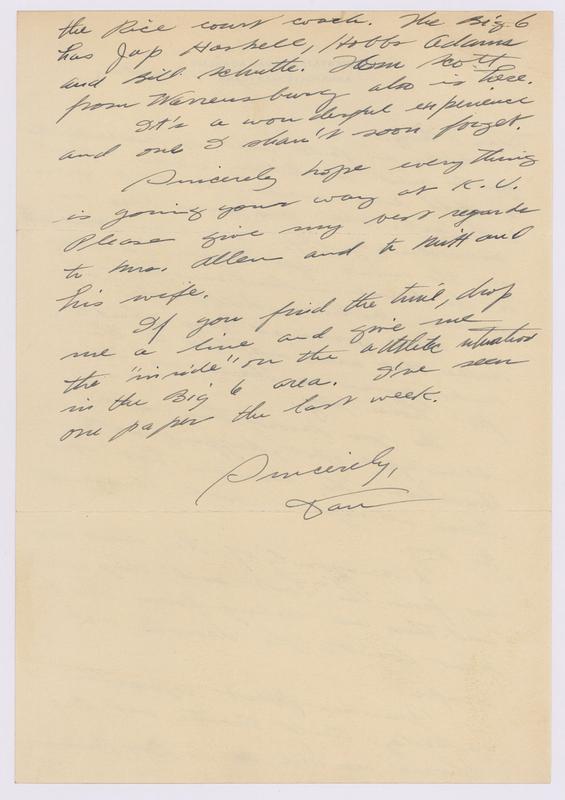 the Rice court coach. The Big 6
has Jap Haskell, Hobbs Adams
and Bill Schutte. Tom Scott
from Warrensburg also is here.
It's a wonderful experience
and one I shan't soon forget.
Sincerely hope everything
is going your way at K.U.
Please give my best regards
to Mrs. Allen and to Mitt and
his wife.
If you find the time, drop
me a line and give me
the "inside" on the athletic situation
in the Big 6 area. I've seen
one paper the last week.
Sincerely,